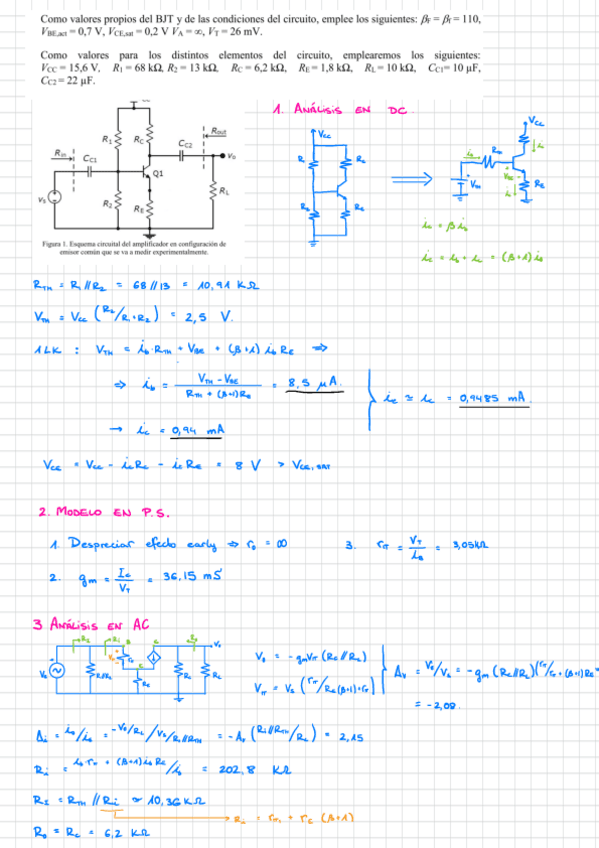 Como valores propios del BJT y de las condiciones del circuito, emplee los siguientes: βF = βf = 110,
VBE,act = 0,7 V, VCE,sat = 0,2 V VA = ∞, VT = 26 mV.
Como valores para los distintos elementos del circuito, emplearemos los siguientes:
VCC = 15,6 V, R1 = 68 kΩ, R2 = 13 kΩ, RC = 6,2 kΩ, RE = 1,8 kΩ, RL = 10 kΩ, CC1= 10 μF,
CC2 = 22 μF.
1. ANÁLISIS EN DC
R1 RC CC2 Rout
Rin CC1 Q1 vo
vs R2 RE RL
Vcc
Vcc
Figura 1. Esquema circuital del amplificador en configuración de
emisor común que se va a medir experimentalmente.
RTH = R1 // R2 = 68 // 13 = 10,91 KΩ
VTH = Vcc (R2/R1+R2) = 2,5 V.
1LK : VTH = ib RTH + VBE + (β+1) ib RE ⇒
⇒ ib = VTH - VBE / RTH + (β+1) RE = 8,5 μA.
→ ic = 0,94 mA
ie ≃ ic = 0,9485 mA.
VCE = Vcc - icRc - ieRE = 8 V > VCE,SAT
2. MODELO EN P.S.
1. Despreciar efecto early ⇒ ro = ∞
3. rπ = VT / ib = 3,05KΩ
2. gm = Ic / VT = 36,15 mS
3 ANÁLISIS EN AC
Vo = - gmVπ (Rc // RL)
Vπ = Vs (rπ/RE(β+1)+rπ)
Av = Vo/Vs = - gm (Rc//RL)(rπ/rπ+(β+1)RE)
= -2,08.
Ai = io/is = -Vo/RL / Vs/Ri//RTH = -Av (Ri//RTH/RL) = 2,15
Ri = ib rπ + (β+1) ib RE / ib = 202,8 KΩ
RI = RTH // Ri ≃ 10,36 KΩ
Ro = Rc = 6,2 KΩ